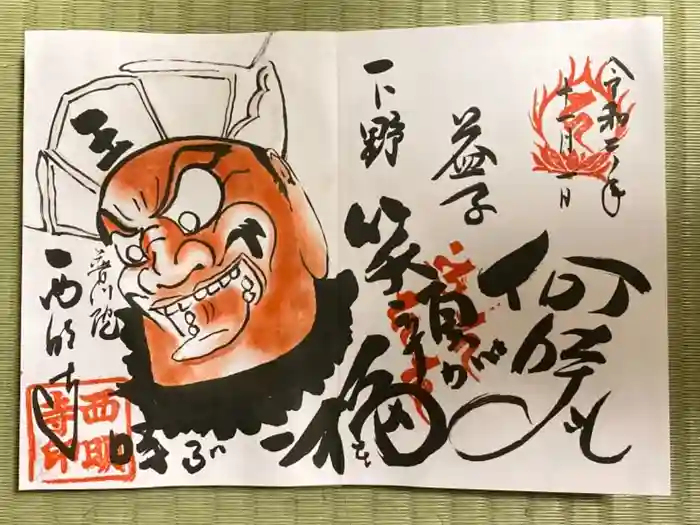 令和二年
十一月一日
下野
益子
何時も
笑顔が
福を
王
普門院
西明寺
西明
寺印